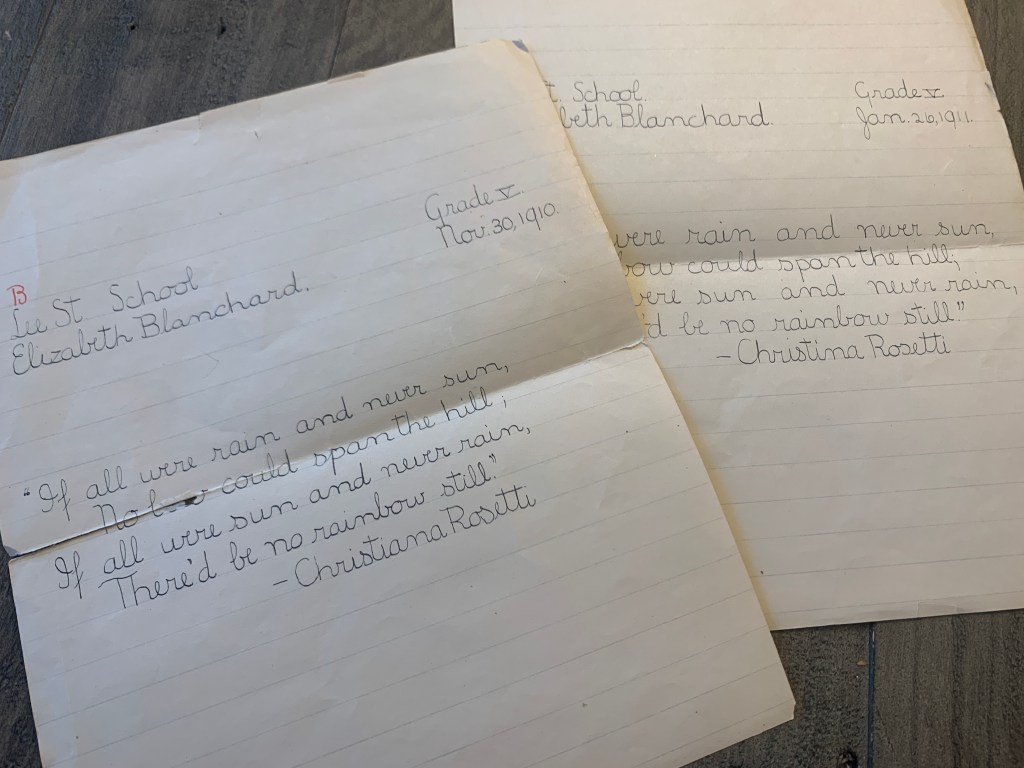 Grade V.
Nov. 30, 1910.
B
Lee St School
Elizabeth Blanchard.
"If all were rain and never sun,
No could span the hill;
If all were sun and never rain,
There'd be no rainbow still."
- Christiana Rosetti
t. School
Grade V.
beth Blanchard.
Jan. 26, 1911.
were rain and never sun,
bow could span the hill;
ere sun and never rain,
'd be no rainbow still."
- Christina Rosetti